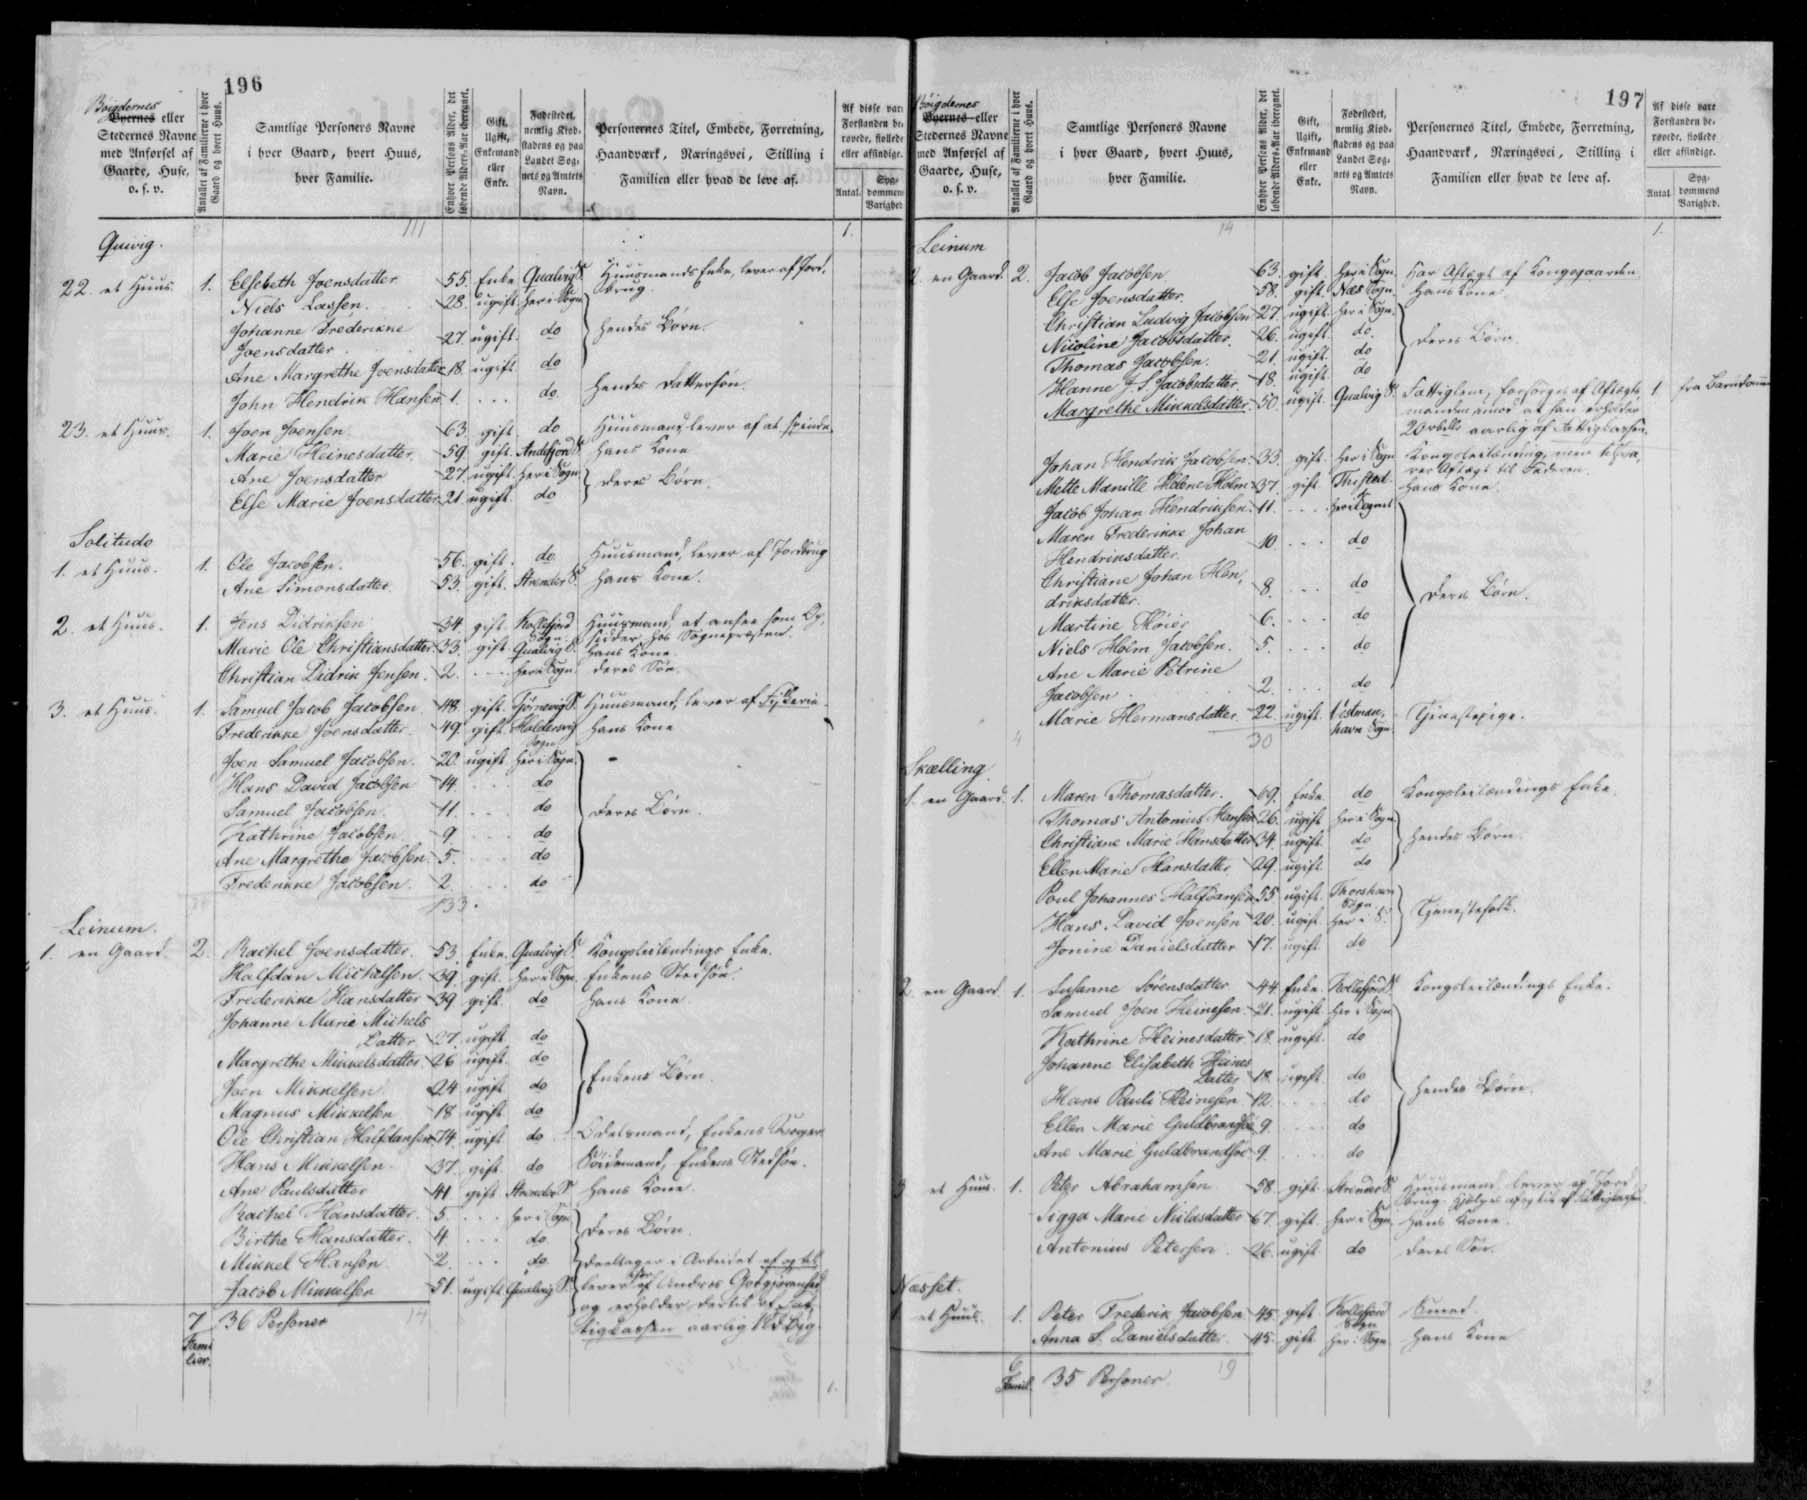 196
Bøigdernes
Byernes eller
Stedernes Navne
med Anførsel af
Gaarde, Huse,
o. s. v.
Antallet af Familierne i hver
Gaard og hvert Huus.
Samtlige Personers Navne
i hver Gaard, hvert Huus,
hver Familie.
Enhver Persons Alder, det
løbende Alders-Aar iberegnet.
Gift,
Ugift,
Enkemand
eller
Enke.
Fødestedet,
nemlig Kiøb-
stadens og paa
Landet Sog-
nets og Amtets
Navn.
Personernes Titel, Embede, Forretning,
Haandværk, Næringsvei, Stilling i
Familien eller hvad de leve af.
Af disse vare
Forstanden be-
røvede, fiollede
eller afsindige.
Antal.
Syg-
dommens
Varighed.
111 1.
Quivig.
22. et Huus. 1. Elsebeth Joensdatter 55. Enke Qualvig S. Huusmands Enke, lever af Jord-
brug.
Niels Lassen. 28. ugift. Her i Sogn
Johanne Frederikke
Joensdatter 27. ugift. do Hendes Børn.
Ane Margrethe Joensdatter 18. ugift do
John Hendrik Hansen 1. ... do. Hendes Dattersøn.
23. et Huus. 1. Joen Joensen. 63. gift do Huusmand, lever af at spinde.
Marie Heinesdatter. 59. gift. Andefjord S. Hans Kone
Ane Joensdatter 27. ugift. Her i Sogn
Else Marie Joensdatter 21. ugift. do Deres Børn.
Solitude
1. et Huus. 1. Ole Jacobsen. 56. gift. do Huusmand, lever af Jordbrug
Ane Simonsdatter. 53. gift. Strender S. Hans Kone.
2. et Huus. 1. Jens Didriksen 54. gift. Kollefjord Sogn. Huusmand, at ansee som Op-
sidder hos Sognepræsten.
Marie Ole Christiansdatter 33. gift. Qualvig S. Hans Kone
Christian Didrik Jensen. 2. ... Her i Sogn. Deres Søn.
3. et Huus. 1. Samuel Jacob Jacobsen. 48. gift. Tjørnevig S. Huusmand, lever af Fiskerie.
Frederikke Joensdatter. 49. gift. Haldersvig Sogn Hans Kone
Joen Samuel Jacobsen. 20. ugift Her i Sogn
Hans David Jacobsen 14. ... do
Samuel Jacobsen 11. ... do Deres Børn.
Kathrine Jacobsen 9 ... do
Ane Margrethe Jacobsen 5. ... do
Frederikke Jacobsen. 2. ... do
133.
Leinum.
1. en Gaard. 2. Rachel Joensdatter. 53. Enke. Qualvig S. Kongsleilendings Enke.
Halfdan Michelsen. 39. gift. Her i Sogn. Enkens Stedsøn.
Frederikke Hansdatter 39 gift. do Hans Kone
Johanne Marie Michels
Datter 27. ugift. do
Margrethe Mikkelsdatter 26 ugift. do
Joen Mikkelsen 24 ugift do Enkens Børn.
Magnus Mikkelsen 18 ugift do
Ole Christian Halfdansen 74. ugift do Odelsmand, Enkens Svoger
Hans Mikkelsen. 37. gift. do Enkens Stedsøn.
Ane Paulsdatter 41 gift Strender S. Hans Kone.
Rachel Hansdatter. 5. ... Her i Sogn
Birthe Hansdatter. 4 ... do. Deres Børn.
Mikkel Hansen. 2. ... do.
Jacob Mikkelsen 51. ugift. Qualvig S. deeltager i Arbeidet og
lever af Andres Godgjørenhed
og erholder dertil af Fat-
tigkassen aarlig
7 36 Personer 14
Fami
lier.
1.
197
Bøigdernes
Byernes eller
Stedernes Navne
med Anførsel af
Gaarde, Huse,
o. s. v.
Antallet af Familierne i hver
Gaard og hvert Huus.
Samtlige Personers Navne
i hver Gaard, hvert Huus,
hver Familie.
Enhver Persons Alder, det
løbende Alders-Aar iberegnet.
Gift,
Ugift,
Enkemand
eller
Enke.
Fødestedet,
nemlig Kiøb-
stadens og paa
Landet Sog-
nets og Amtets
Navn.
Personernes Titel, Embede, Forretning,
Haandværk, Næringsvei, Stilling i
Familien eller hvad de leve af.
Af disse vare
Forstanden be-
røvede, fiollede
eller afsindige.
Antal
Syg-
dommens
Varighed.
14 1.
Leinum
2. en Gaard. 2. Jacob Jacobsen 63. gift. Her i Sogn. Har Aftægt af Kongsgaarden.
Else Joensdatter. 58. gift. Næs Sogn. Hans Kone
Christian Ludvig Jacobsen 27. ugift. Her i Sogn.
Nicoline Jacobsdatter. 26. ugift. do. Deres Børn.
Thomas Jacobsen. 21. ugift. do
Hanne J. S. Jacobsdatter. 18. ugift. do
Margrethe Mikkelsdatter. 50. ugift. Qualvig S. Fattiglem, forsørges af Aftægts- 1 fra Barndommen
manden imod at han erholder
20 rbdl aarlig af Fattigkassen.
Johan Hendrik Jacobsen. 33. gift. Her i Sogn Kongsleilænding, men
Aftægt til Faderen.
Mette Manille Helene Holm 37. gift. Thisted. Hans Kone.
Jacob Johan Hendriksen. 11. ... Her i Sognet
Maren Frederikke Johan
Hendriksdatter. 10. ... do
Christiane Johan Hen-
driksdatter. 8. ... do Deres Børn.
Martine Høier 6. ... do
Niels Holm Jacobsen. 5. ... do
Ane Marie Petrine
Jacobsen 2. ... do
Marie Hermansdatter. 22. ugift. Vestman-
havn Sogn Tjenestepige.
30
4
Skælling
1. en Gaard. 1. Maren Thomasdatter. 69. Enke. do Kongsleilændings Enke.
Thomas Antonius Hansen 26. ugift. Her i Sogn
Christiane Marie Hansdatter 34. ugift. do Hendes Børn.
Ellen Marie Hansdatter 29. ugift. do
Poul Johannes Halfdansen 55 ugift. Thorshavn Sogn
Hans David Joensen 20. ugift Her i S. Tjenestefolk.
Jonine Danielsdatter 17. ugift do
2. en Gaard 1. Susanne Sørensdatter 44 Enke. Kollefjord S. Kongsleilændings Enke.
Samuel Joen Heinesen. 21. ugift. Her i Sogn
Kathrine Heinesdatter 18. ugift. do
Johanne Elisabeth Heines
Datter 18. ugift do
Hans Pauli Heinesen 12. ... do Hendes Børn.
Ellen Marie Guldbrandsdr 9. ... do
Ane Marie Guldbrandsdr. 9. ... do
3 et Huus. 1. Peter Abrahamsen 58. gift. Strender S. Huusmand, lever af Jord-
brug
Sigga Marie Niclasdatter 67. gift. Her i Sogn Hans Kone.
Antonius Petersen 26. ugift. do Deres Søn.
Næsset.
1. et Huus. 1. Peter Frederik Jacobsen 45. gift Kollefjord Sogn Smed.
Anna S. Danielsdatter. 45. gift Her i Sogn Hans Kone
6
Famil. 35 Personer. 19
2